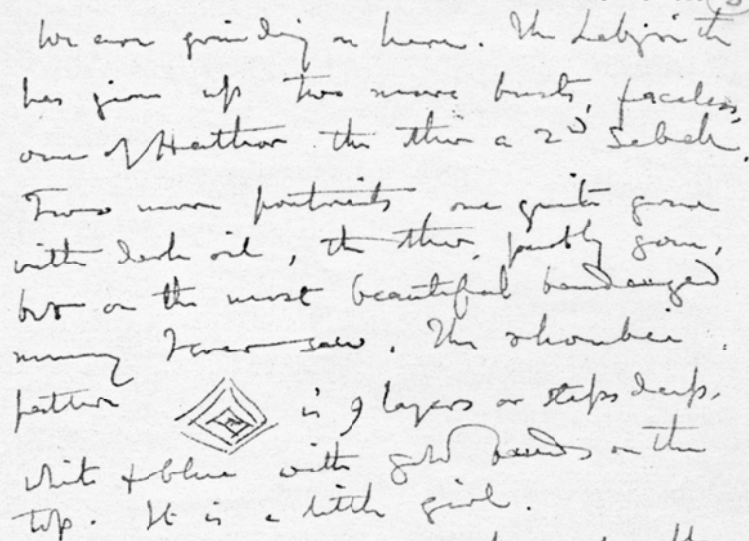 We are grinding on here. The Labyrinth
has given up two more busts, faceless,
one of Hathor the other a 2nd Sebek.
Two more portraits one quite gone
with dark oil, the other, partly gone,
but on the most beautiful bandaged
mummy I ever saw. The rhombic
pattern is 9 layers or steps deep.
white & blue with gold bands on the
top. It is a little girl.